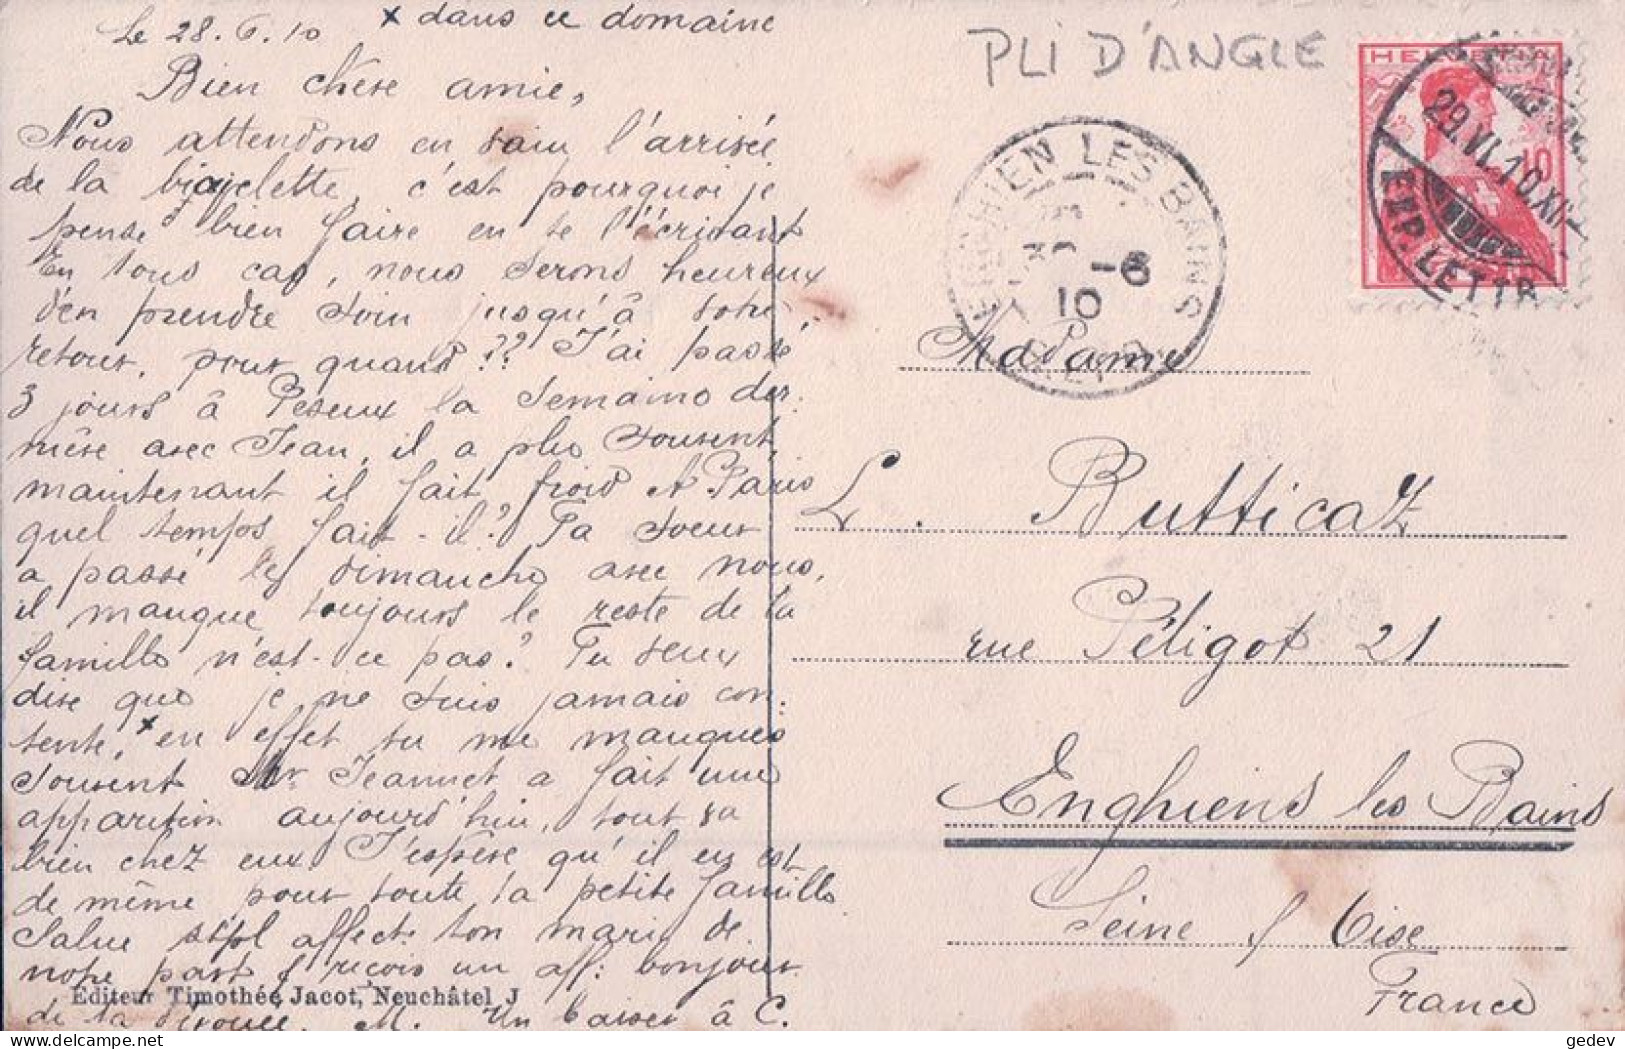 Le 28.6.10
x dans ce domaine
Bien chère amie,
Nous attendons en vain l'arrivée
de la bicyclette, c'est pourquoi je
pense bien faire en te l'écrivant
En tous cas, nous serons heureux
d'en prendre soin jusqu'à votre
retour, pour quand?? J'ai passé
3 jours à Peseux la semaine der-
nière avec Jean, il a plu souvent,
maintenant il fait froid et Paris
quel temps fait-il? Ta soeur
a passé le dimanche avec nous,
il manque toujours le reste de la
famille n'est-ce pas? Tu veux
dire que je ne suis jamais con-
tente, x en effet tu me manques
souvent Mr Jeannet a fait une
apparition aujourd'hui, tout va
bien chez eux J'espère qu'il en est
de même pour toute ta petite famille
Salue stpl affect. ton mari de
notre part & reçois un aff: bonjour
de ta M. Un baiser à C.
Editeur Timothée Jacot, Neuchâtel J
PLI D'ANGLE
HELVETIA
10
29.VI.10.XII
EXP. LETTR
ENGHIEN LES BAINS
-6
10
Madame
L. Butticaz
rue Péligot 21
Enghiens les Bains
Seine & Oise
France
gedev